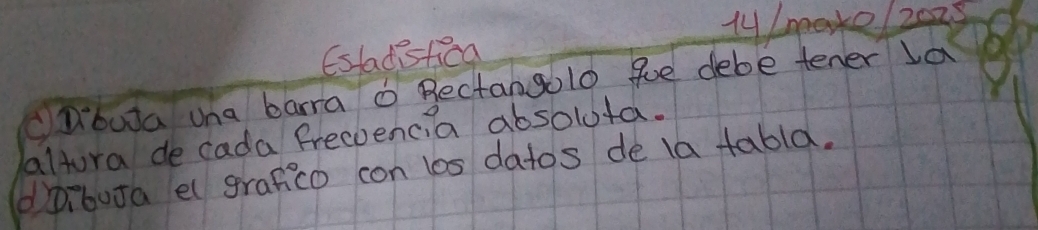 14/mayo/2025
Estadistica
c) Dibuja una barra ó Rectangulo que debe tener la
altura de cada frecuencia absoluta.
d) Dibuja el grafico con los datos de la tabla.